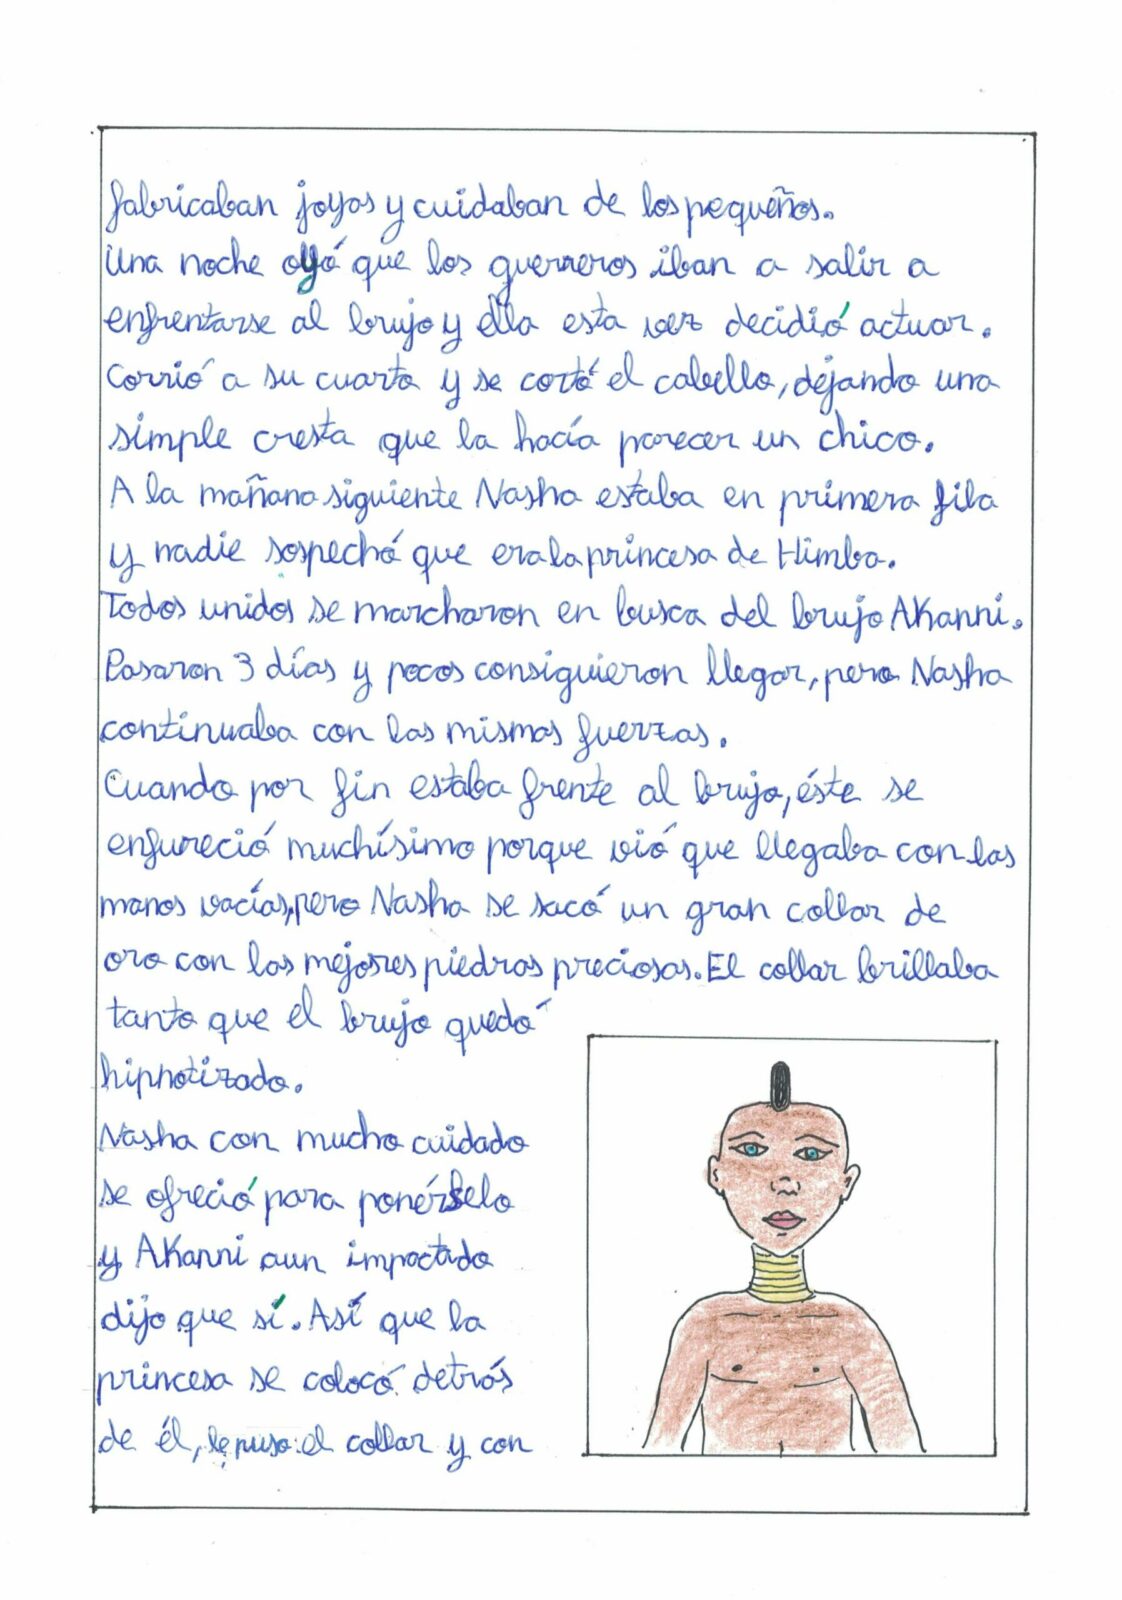 fabricaban joyas y cuidaban de los pequeños.
Una noche oyó que los guerreros iban a salir a
enfrentarse al brujo y ella esta vez decidió actuar.
Corrió a su cuarto y se cortó el cabello, dejando una
simple cresta que la hacía parecer un chico.
A la mañana siguiente Nasha estaba en primera fila
y nadie sospechó que era la princesa de Himba.
Todos unidos se marcharon en busca del brujo AKanni.
Pasaron 3 días y pocos consiguieron llegar, pero Nasha
continuaba con las mismas fuerzas.
Cuando por fin estaba frente al brujo, éste se
enfureció muchísimo porque vió que llegaba con las
manos vacías, pero Nasha se sacó un gran collar de
oro con las mejores piedras preciosas. El collar brillaba
tanto que el brujo quedó
hipnotizado.
Nasha con mucho cuidado
se ofreció para ponérselo
y AKanni aun impactado
dijo que sí. Así que la
princesa se colocó detrás
de él, le puso el collar y con